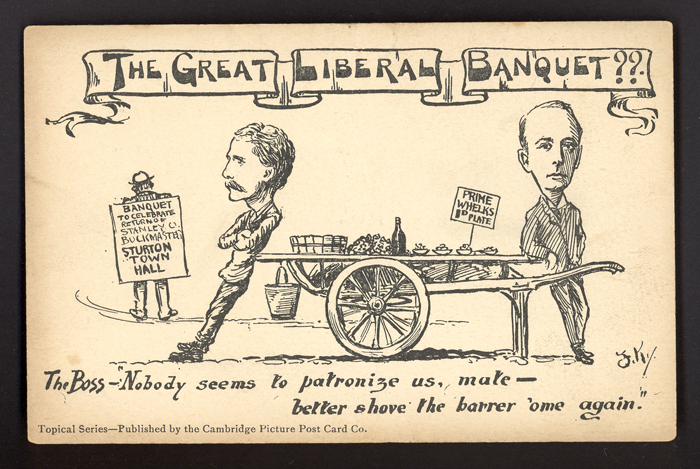 THE GREAT LIBERAL BANQUET ??
BANQUET
TO CELEBRATE
RETURN OF
STANLEY O.
BUCKMASTER
STURTON
TOWN
HALL
PRIME
WHELKS
1D PLATE
The Boss—"Nobody seems to patronize us, mate—
better shove the barrer 'ome again."
Topical Series—Published by the Cambridge Picture Post Card Co.